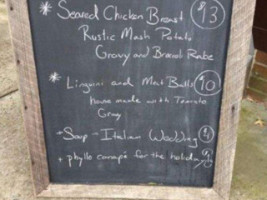 * Seared Chicken Breast $13
Rustic Mash Potato
Gravy and Broccoli Rabe
* Linguini and Meat Balls $10
House made with Tomato
Gravy
Soup - Italian Wedding
+ phyllo canapé for the holiday